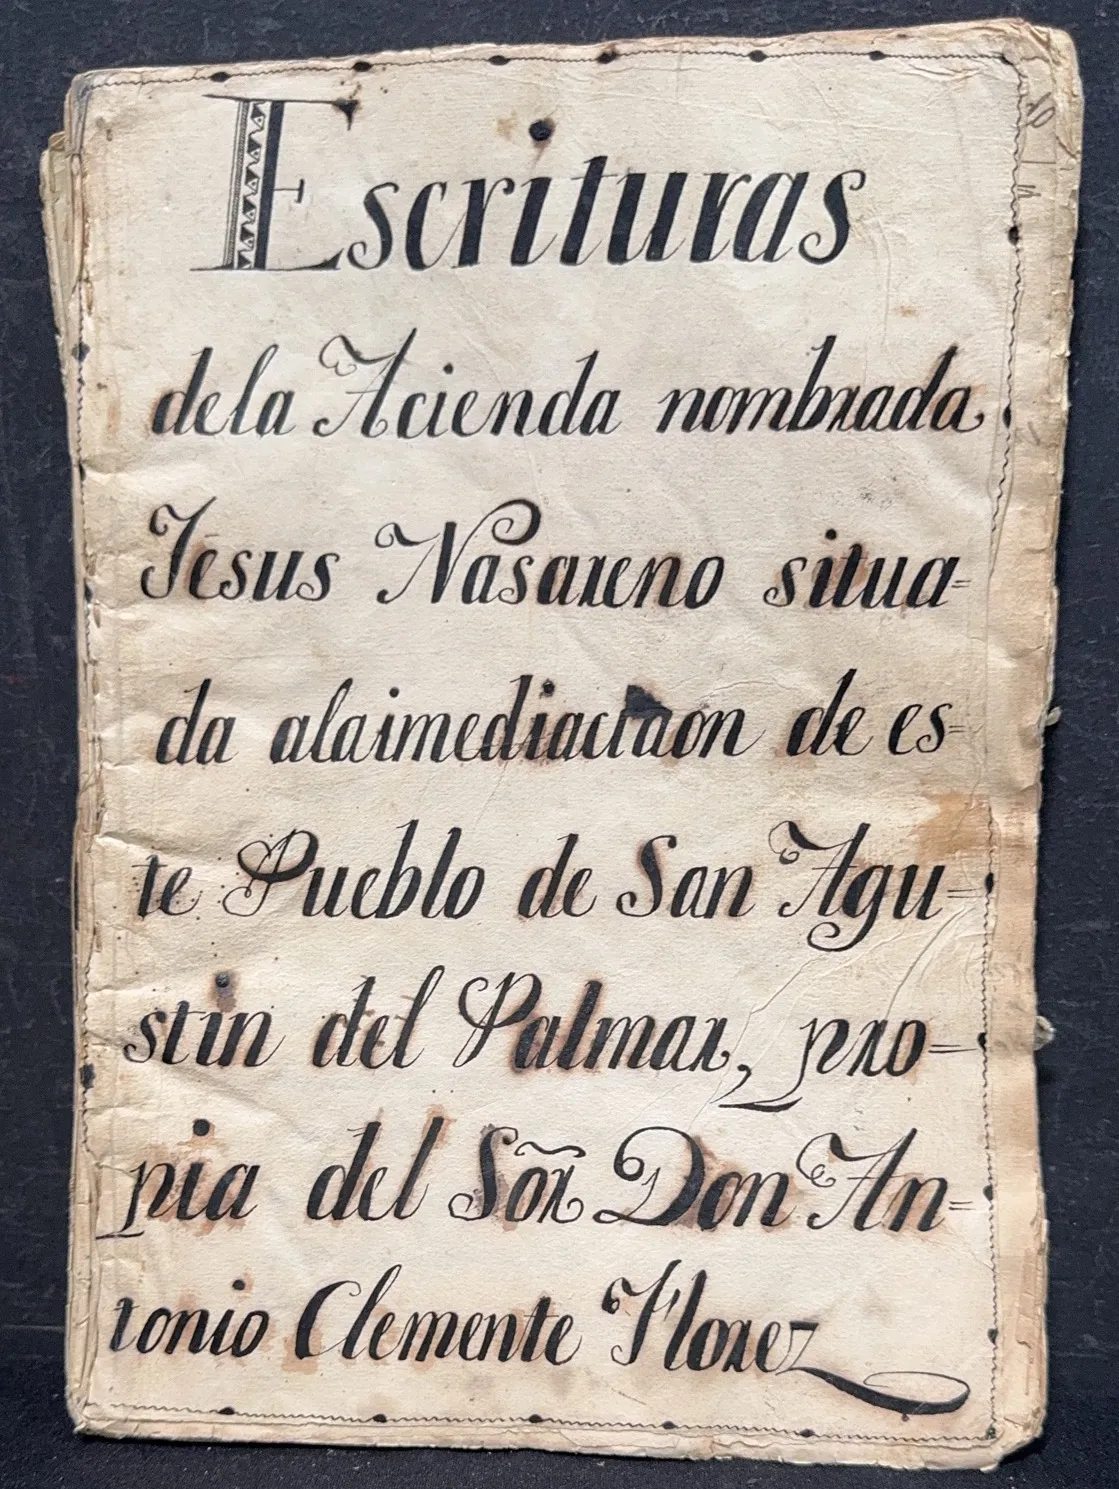 Escrituras
dela Acienda nombrada
Jesus Nasareno situa=
da alaimediactaon de es=
te Pueblo de San Agu=
stin del Palmar, pro=
pia del Sõr Don An=
tonio Clemente Florez